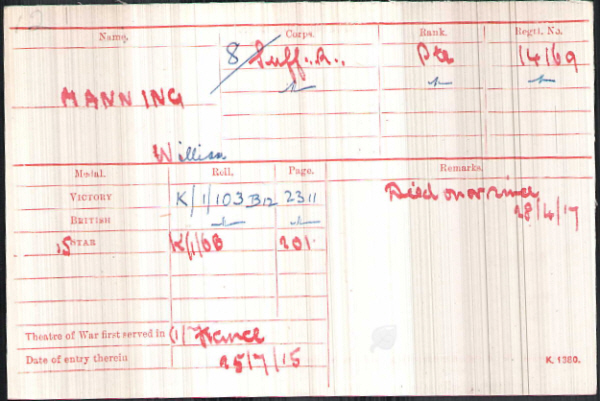 Name. Corps. Rank. Regtl. No.
8 Suff. R. Pte 14169
MANNING
William
Medal. Roll. Page. Remarks.
VICTORY K/1/103 B12 2311 Died on or since
BRITISH 28/4/17
15 STAR K/1/6B 201.
Theatre of War first served in (1) France
Date of entry therein 25/7/15
K. 1380.